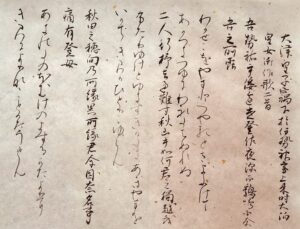 大津皇子竊下於伊勢神宮上来時大伯
皇女御作歌二首
吾勢祜乎倭邊遺登佐夜深而鷄鳴露尓
吾立所霑
わかせこをやまとへやるとさよふけて
あかつきつゆにわかたちぬれし
二人行杼去過難寸秋山乎如何君之獨越武
ふたりゆけとゆきすきかたきあきやまを
いかてかきみかひとりこゆらん
秋田之穂向乃所縁異所縁君尓因奈名事
痛有登母
あきのたのほむけのよするかたよりに